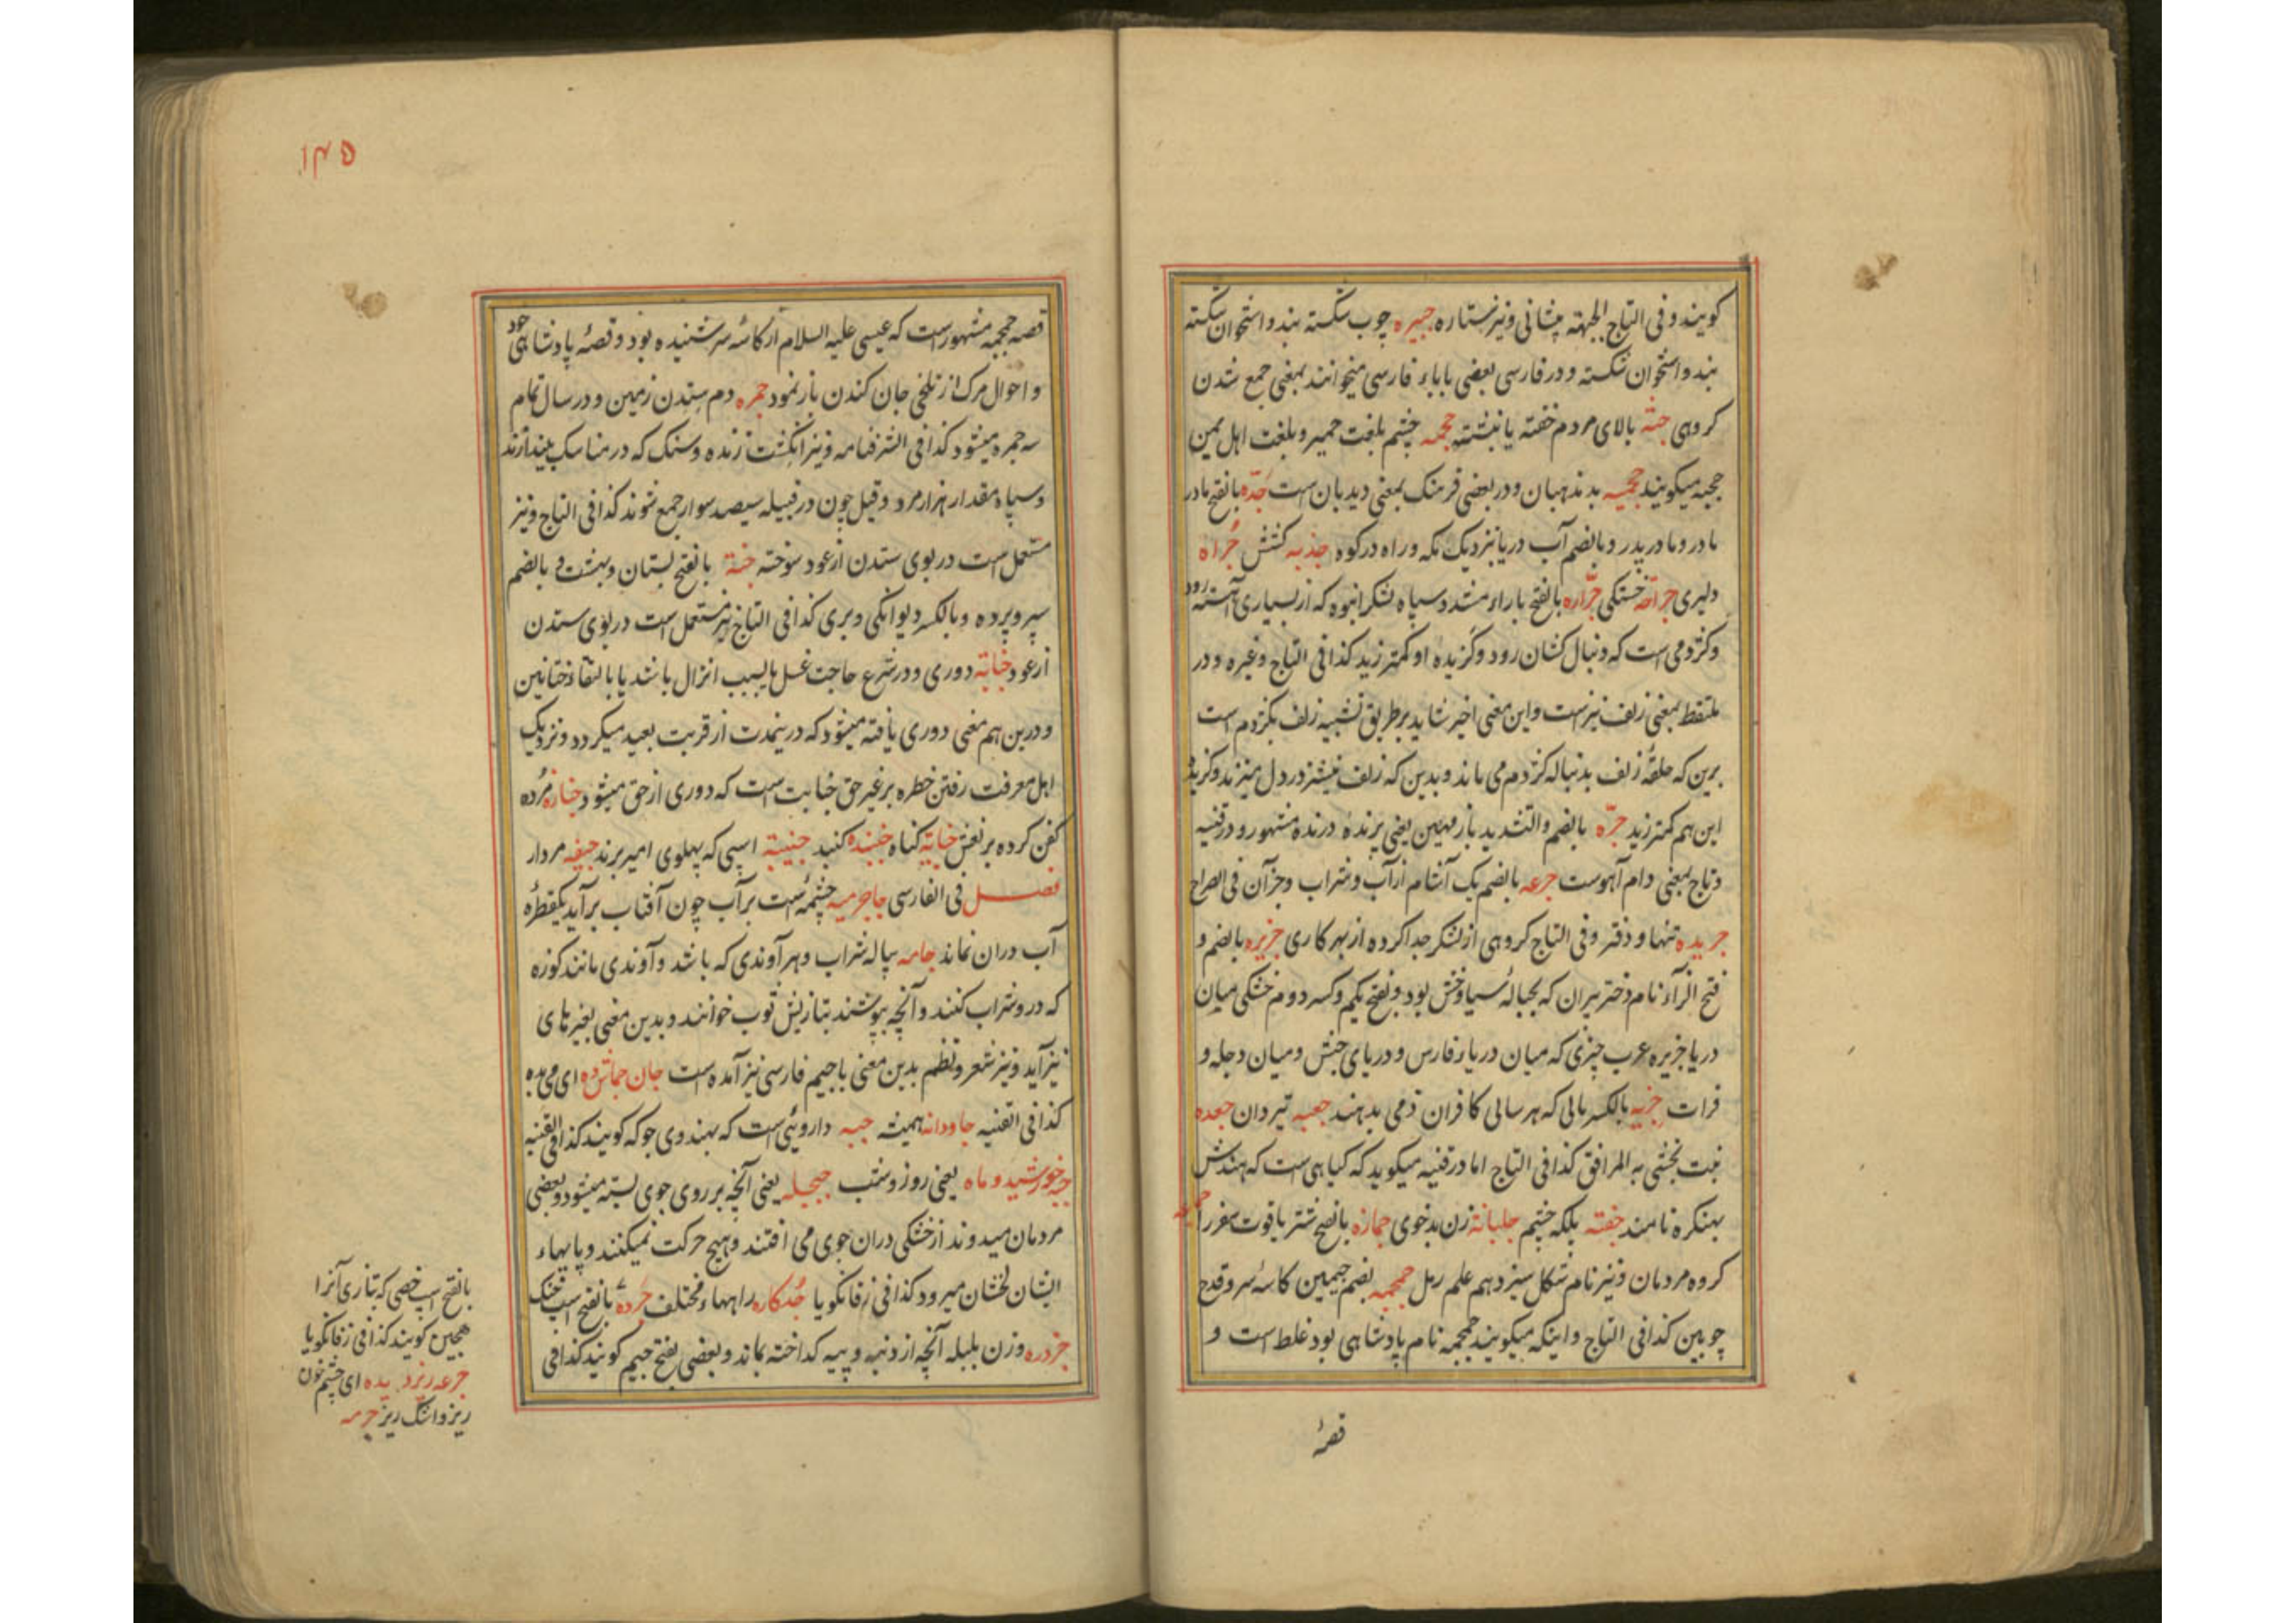 کویند و فی التاج الجبهته پیشانی و نیز ستاره جبیره چوب شکسته بند و استخوان شکسته
بند و استخوان شکسته و در فارسی بعضی باباء فارسی میخوانند بمعنی جمع شدن
کروهی جثه بالای مردم خفته یا نشسته جحمه چشم بلغت حمیر و بلغت اهل یمن
جحبه میکویند بد ندبهان و در بعضی فرهنک بمعنی دیدبان است جدّه بالفتح مادر
مادر و مادر پدر و بالضم آب دریا نزدیک مکه و راه در کوه جذبه کشش جُراه
دلیری جراحَة خستکی جرّاره بالفتح باراء مشدد سپاه لشکر انبوه که از بسیاری آهسته رود
و کژدمی است که دنبال کشان رود و کزیده او کمتر زید کذا فی التاج وغیره و در
ملتقط بمعنی زلف نیز است و این معنی اخیر شاید بر طریق تشبیه زلف بکژدم است
برین که حلقهٔ زلف بدنباله کژدم می ماند و بدین که زلف نیشتر در دل میزند و کزیده
این هم کمتر زید جرّه بالضم والتشدید باز مهین یعنی پرنده درنده مشهور و در قنیه
و تاج بمعنی دام آهوست جرعه بالضم یک آشام از آب و شراب و جز آن فی الصراح
جریده تنها و دفتر و فی التاج کروهی از لشکر جدا کرده از بهر کاری جزیره بالضم و
فتح الراء نام دختر پیران که بحبالهٔ سیاوخش بود و بفتح یکم و کسر دوم خشکی میان
دریا جزیره عرب چیزی که میان دریاء فارس و دریای حبش و میان دجله و
فرات جزیه بالکسر مالی که هر سالی کافران ذمی بدهند جعبه تیردان جعده
نبت کذا فی التاج اما در قنیه میکوید که کیاهی است که هندش
بهنکره نامند جفته پلکه چشم جلبانة زن بدخوی جمازه بالفتح شتر باقوت سفر را
کروه مردمان و نیز نام شکل سیزدهم علم رمل جمجمه بضم جیمین کاسهٔ سر و قدح
چوبین کذا فی التاج و اینکه میکویند جمجمه نام پادشاهی بود غلط است و
قصهٔ
۱۴۵
قصه جمجمه مشهور است که عیسی علیه السلام از کاسهٔ سر شنیده بود و قصهٔ پادشاهی خود
و احوال مرک از تلخی جان کندن باز نمود جمره دم ستدن زمین و در سال تمام
سه جمره میشود کذا فی الشرفنامه و نیز انکشت زنده و سنک که در مناسک بیندازند
و سپاه مقدار هزار مرد و قیل چون در قبیله سیصد سوار جمع شوند کذا فی التاج و نیز
مستعمل است در بوی ستدن از عود سوخته جنة بالفتح بستان و بهشت و بالضم
سپر و پرده و بالکسر دیوانکی و پری کذا فی التاج نیز مستعمل است در بوی ستدن
از عود جنابة دوری و در شرع حاجت غسل یا بسبب انزال باشد یا بالتقاء ختانین
و درین هم معنی دوری یافته میشود که درینمدت از قربت بعید میکردد و نزدیک
اهل معرفت رفتن خطره بر غیر حق جنابت است که دوری از حق میشود جنازه مُرده
کفن کرده بر نعش جنایة کناه جنبذه کنبد جنیبة اسپی که پهلوی امیر برند جیفه مردار
فصل فی الفارسی جاجرمیه چشمهٔ است پر آب چون آفتاب برآید یکقطرهٔ
آب دران نماند جامه پیاله شراب و هر آوندی که باشد و آوندی مانند کوزه
که درو شراب کنند و آنچه بپوشند بتازیش ثوب خوانند و بدین معنی بغیرهای
نیز آید و نیز شعر و نظم بدین معنی با جیم فارسی نیز آمده است جان جماش ده ای می بده
کذا فی القنیه جاودانه همیشه جبه داروئیست که بهندوی جوکه کویند کذا فی القنیه
جبه خورشید و ماه یعنی روز و شب ججیله یعنی آنچه بر روی جوی بسته میشود و بعضی
مردمان میدوند از خشکی دران جوی می افتند و هیچ حرکت نمیکنند و پایهاء
ایشان لخشان میرود کذا فی زفانکویا جُدکاره راههاء مختلف جُرده بالفتح اسپ خنک
جزدره وزن بلبله آنچه از دنبه و پیه کداخته بماند و بعضی بفتح جیم کویند کذا فی
بالفتح اسپ خصی که بتازی آنرا
هجین کویند کذا فی زفانکویا
جرعه ریز دیده ای چشم خون
ریز و اشک ریز جرمه